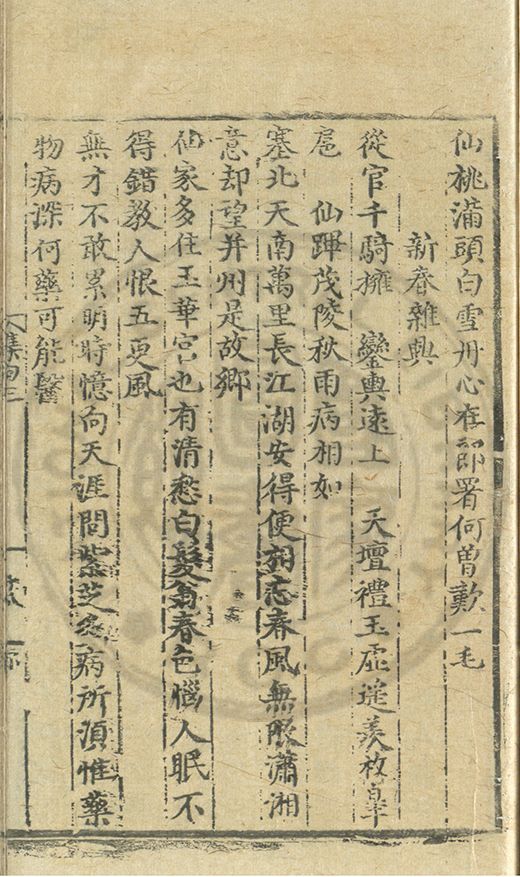 仙桃滿頭白雪丹心在郎署何曾歎一毛
新春雜興
從官千騎擁 鑾輿遠上 天壇禮玉虛遥羨枚臯
扈 仙蹕茂陵秋雨病相如
塞北天南萬里長江湖安得便相忘春風無限瀟湘
意却望并州是故鄉
仙家多住玉華宮也有清愁白髮翁春色惱人眠不
得錯教人恨五更風
無才不敢累明時憶向天涯問紫芝多病所須惟藥
物病深何藥可能醫